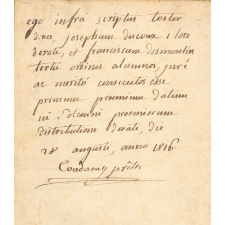 ego infra scriptus testor
josephum ducoux e loco
dorati, et franciscum desmoulin
tertii ordinis alumnos, jure
ac merito consecutos esse
primum proemium datum
in Solemni proemiorum
distributione dorati, die
28 augusti, anno 1816.